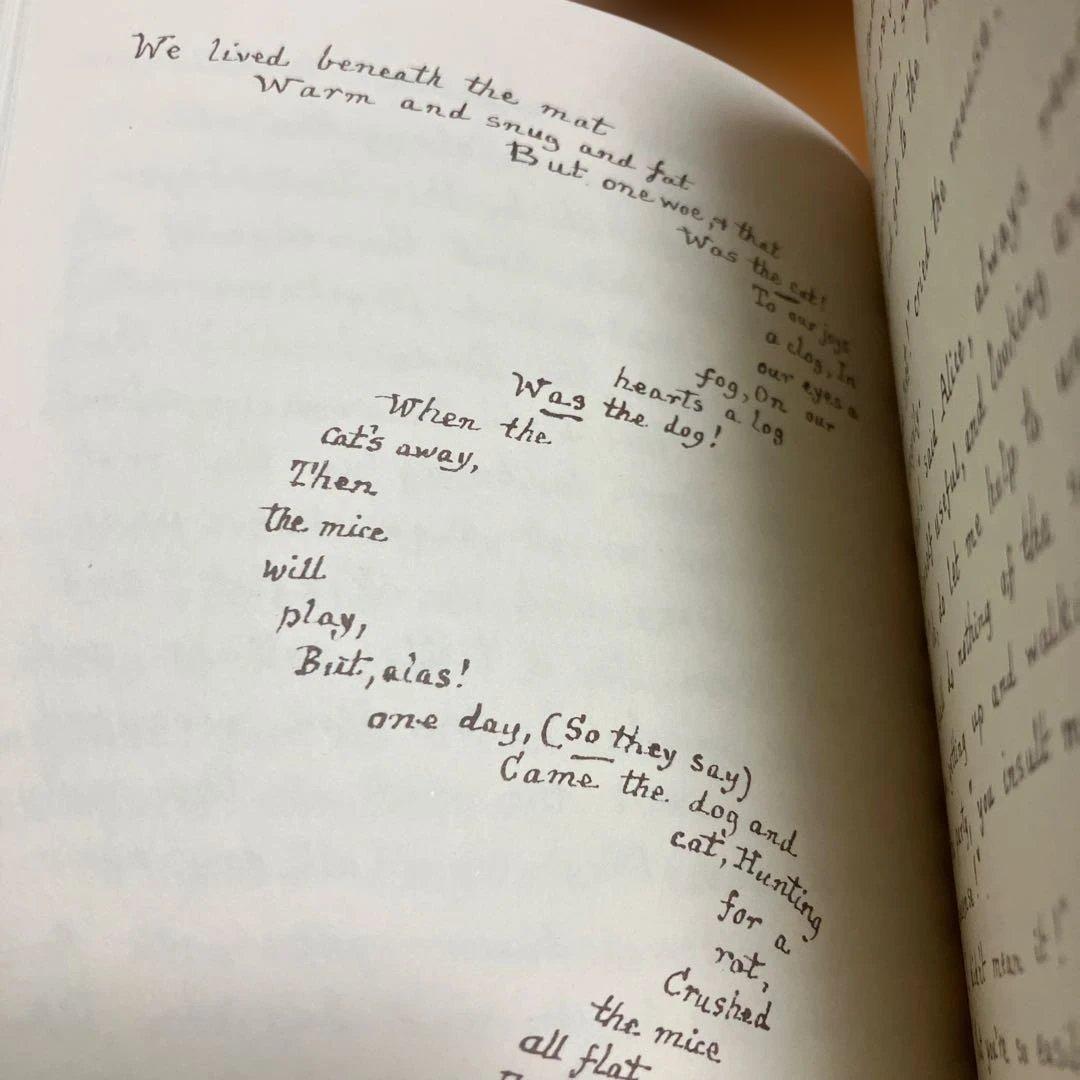 We lived beneath the mat
Warm and snug and fat
But one woe, & that
Was the cat!
To our joys
a clog, In
our eyes a
fog, On our
hearts a log
Was the dog!
When the
cat's away,
Then
the mice
will
play,
But, alas!
one day, (So they say)
Came the dog and
cat, Hunting
for a
rat,
Crushed
the mice
all flat
cried the
said Alice, always
useful, and looking
do let me help to
nothing of the
up and
you insult
mean it!"
you're so